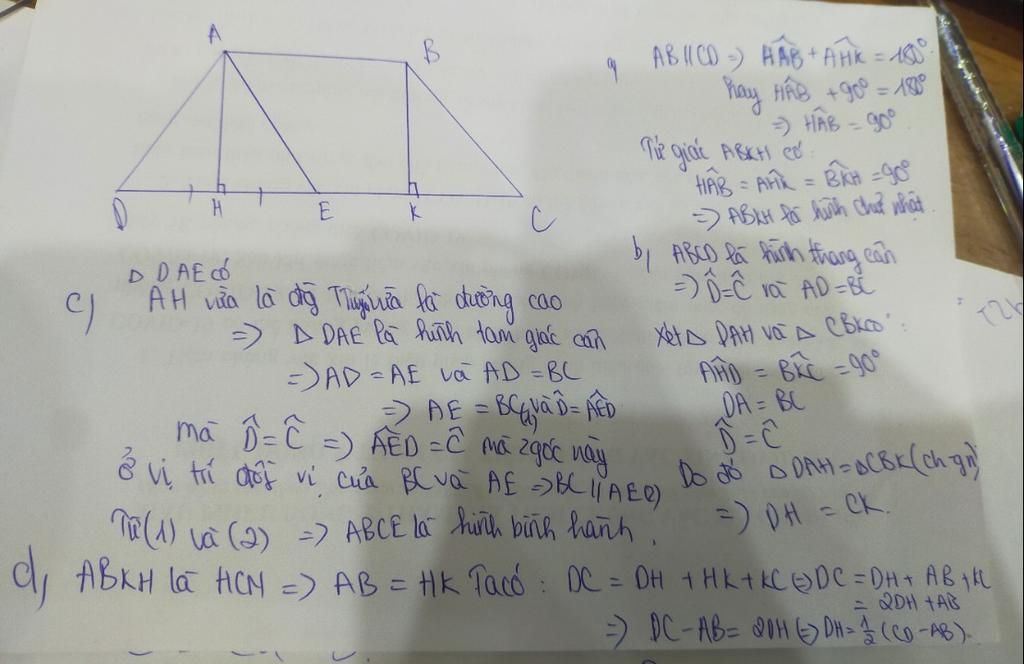 A
B
D
H
E
K
C
a, AB//CD => HÂB + AĤK = 180°
hay HÂB + 90° = 180°
=> HÂB = 90°
Tứ giác ABKH có:
HÂB = AĤK = BK̂H = 90°
=> ABKH là hình chữ nhật.
b, ABCD là hình thang cân
=> D̂ = Ĉ và AD = BC
Xét △ DAH và △ CBK có:
AĤD = BK̂C = 90°
DA = BC
D̂ = Ĉ
Do đó △DAH = △CBK (ch-gn)
=> DH = CK.
△ DAE có
c) AH vừa là đg Ttuyến vừa là đường cao
=> △ DAE là hình tam giác cân
=> AD = AE và AD = BC
=> AE = BC(1) và D̂ = AÊD
mà D̂ = Ĉ => AÊD = Ĉ mà 2 góc này
ở vị trí đồg vị của BC và AE => BC // AE(2)
Từ (1) và (2) => ABCE là hình bình hành.
d, ABKH là HCN => AB = HK Ta có: DC = DH + HK + KC <=> DC = DH + AB + KC
= 2DH + AB
=> DC - AB = 2DH <=> DH = 1/2 (CD - AB).